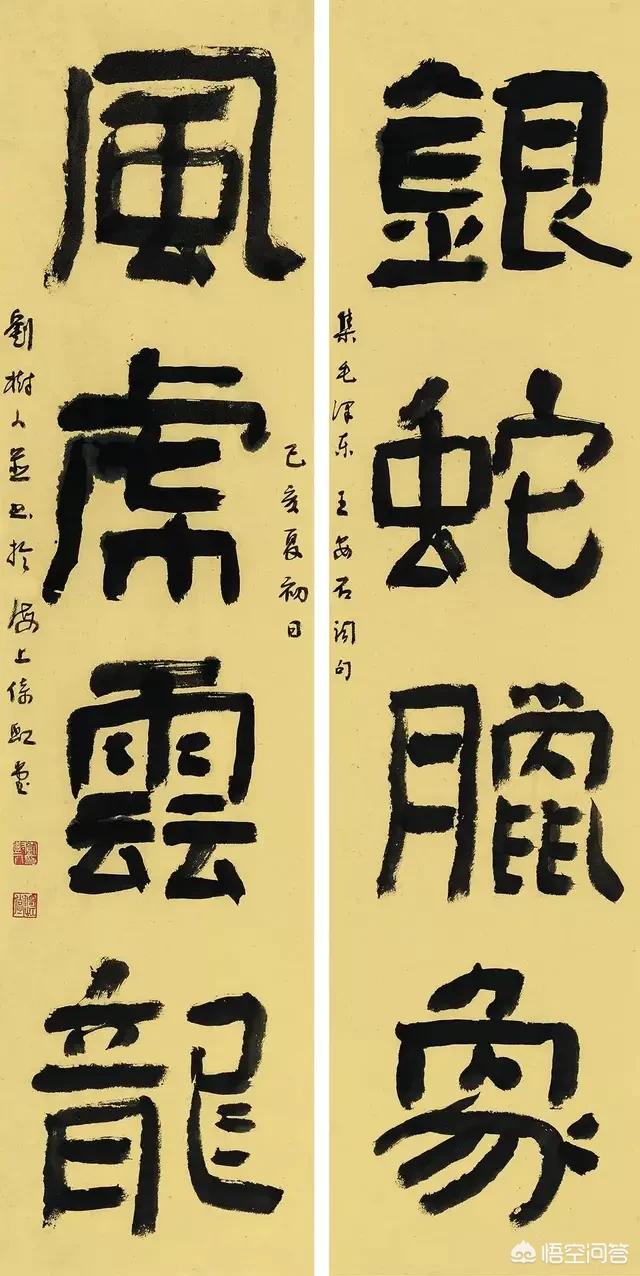 銀蛇臘象
集毛泽东王安石词句
己亥夏初日
風虎雲龍
劉樹人並书於海上倚虹堂
悟空问答